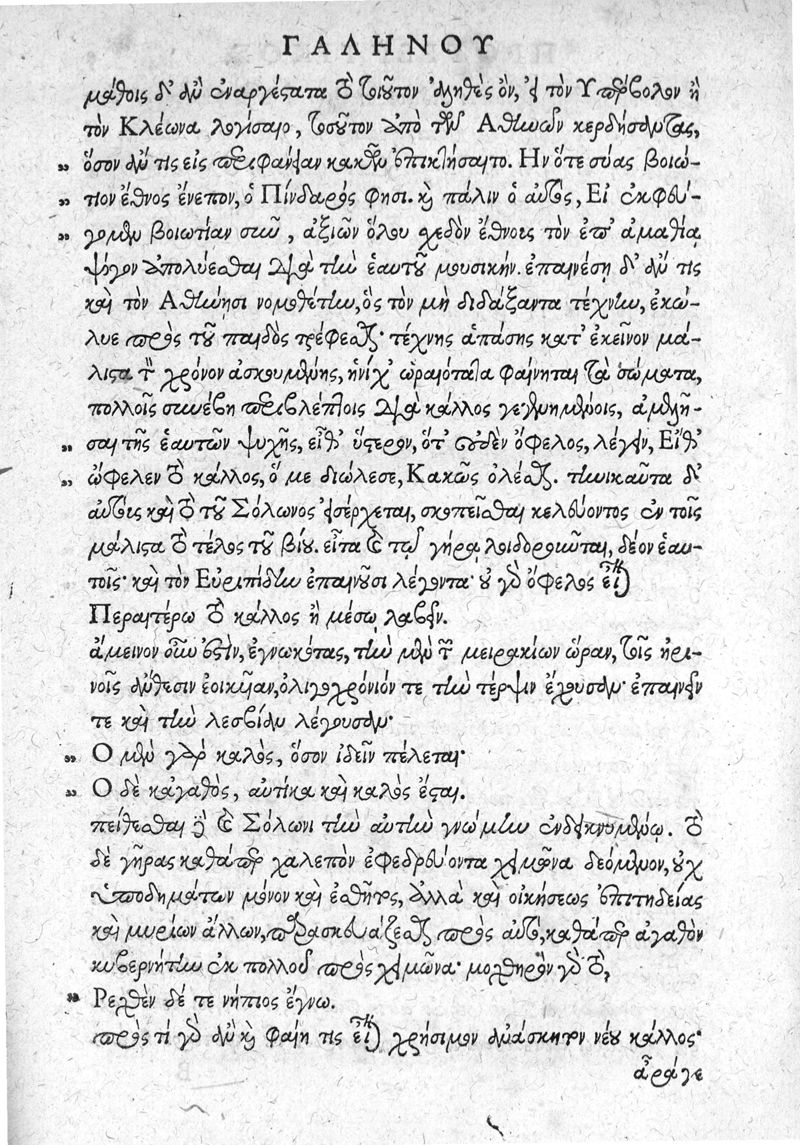 ΓΑΛΗΝΟΥ
μάθοις δ' ἂν ἐναργέστατα τὸ τοιοῦτον ἀληθὲς ὂν, εἰ τὸν Υπέρβολον ἢ
τὸν Κλέωνα λογίσαιο, τοσοῦτον ἀπὸ τῶν Αθηνῶν κερδήσαντας,
ὅσον ἄν τις εἰς περιφάνειαν κακῶν ἐπικλήσαιτο. Ην ὅτε σύας βοιώ-
τιον ἔθνος ἔνεπον, ὁ Πίνδαρός φησι. καὶ πάλιν ὁ αὐτὸς, Εἰ ἐκφεύ-
γομεν βοιωτίαν σιῶ, ἀξιῶν ὅλου σχεδὸν ἔθνους τὸν ἐπ' ἀμαθίᾳ
ψόγον ἀπολύεσθαι διὰ τὴν ἑαυτοῦ μουσικήν. ἐπαινέση δ' ἄν τις
καὶ τὸν Αθήνησι νομοθέτην, ὃς τὸν μὴ διδάξαντα τέχνην, ἐκώ-
λυε πρὸς τοῦ παιδὸς τρέφεσθαι· τέχνης ἁπάσης κατ' ἐκεῖνον μά-
λιστα τὸν χρόνον ἀσκουμένης, ἡνίχ' ὡραιότατα φαίνηται τὰ σώματα,
πολλοῖς συνέβη περιβλέπτοις διὰ κάλλος γεγενημένοις, ἀμελῆ-
σαι τῆς ἑαυτῶν ψυχῆς, εἶθ' ὕστερον, ὅτ' οὐδὲν ὄφελος, λέγειν, Εἴθ'
ὤφελεν τὸ κάλλος, ὅ με διώλεσε, Κακῶς ὀλέσθαι. τηνικαῦτα δ'
αὐτοῖς καὶ τὸ τοῦ Σόλωνος εἰσέρχεται, σκοπεῖσθαι κελεύοντος ἐν τοῖς
μάλιστα τὸ τέλος τοῦ βίου. εἶτα καὶ τῷ γήρᾳ λοιδοροῦνται, δέον ἑαυ-
τοῖς· καὶ τὸν Εὐριπίδην ἐπαινοῦσι λέγοντα· οὐ γὰρ ὄφελος εἶναι
Περαιτέρω τὸ κάλλος ἢ μέσῳ λαβεῖν.
ἄμεινον οὖν ἐστὶν, ἐγνωκότας, τὴν μὲν τῶν μειρακίων ὥραν, τοῖς ἠρι-
νοῖς ἄνθεσιν ἐοικυῖαν, ὀλιγοχρόνιόν τε τὴν τέρψιν ἔχουσαν· ἐπαινεῖν
τε καὶ τὴν λεσβίαν λέγουσαν·
Ο μὲν γὰρ καλὸς, ὅσον ἰδεῖν πέλεται·
Ο δὲ κἀγαθὸς, αὐτίκα καὶ καλὸς ἔσται.
πείθεσθαι δὲ καὶ Σόλωνι τὴν αὐτὴν γνώμην ἐνδεικνυμένῳ. τὸ
δὲ γῆρας καθάπερ χαλεπὸν ἐφεδρεύοντα χειμῶνα δεόμενον, οὐχ
ὑποδημάτων μόνον καὶ ἐσθῆτος, ἀλλὰ καὶ οἰκήσεως ἐπιτηδείας
καὶ μυρίων ἄλλων, παρασκευάζεσθαι πρὸς αὐτὸ, καθάπερ ἀγαθὸν
κυβερνήτην ἐκ πολλοῦ πρὸς χειμῶνα· μοχθηρὸν γὰρ τὸ,
Ρεχθὲν δέ τε νήπιος ἔγνω.
πρὸς τί γὰρ ἂν καὶ φαίη τις εἶναι χρήσιμον ἀνάσκητον νέου κάλλος·
ἆρά γε